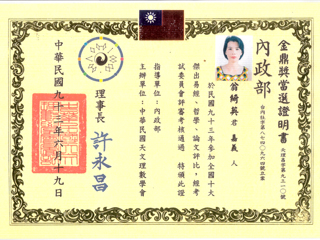 金鼎獎當選證明書
內政部
翁綺英君 嘉義 人
於民國九十三年參加全國十大
傑出易經、哲學、論文評比，經考
試委員會評審考核通過 特頒此證
指導單位：內政部
主辦單位：中華民國天文理數學會
理事長
許永昌
中華民國九十三年六月十九日